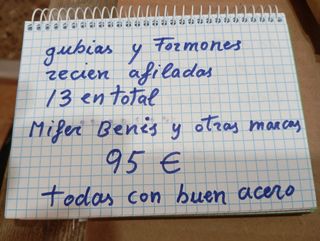 gubias y Formones
recien afiladas
13 en total
Mifer Benis y otras marcas
95 €
todas con buen acero